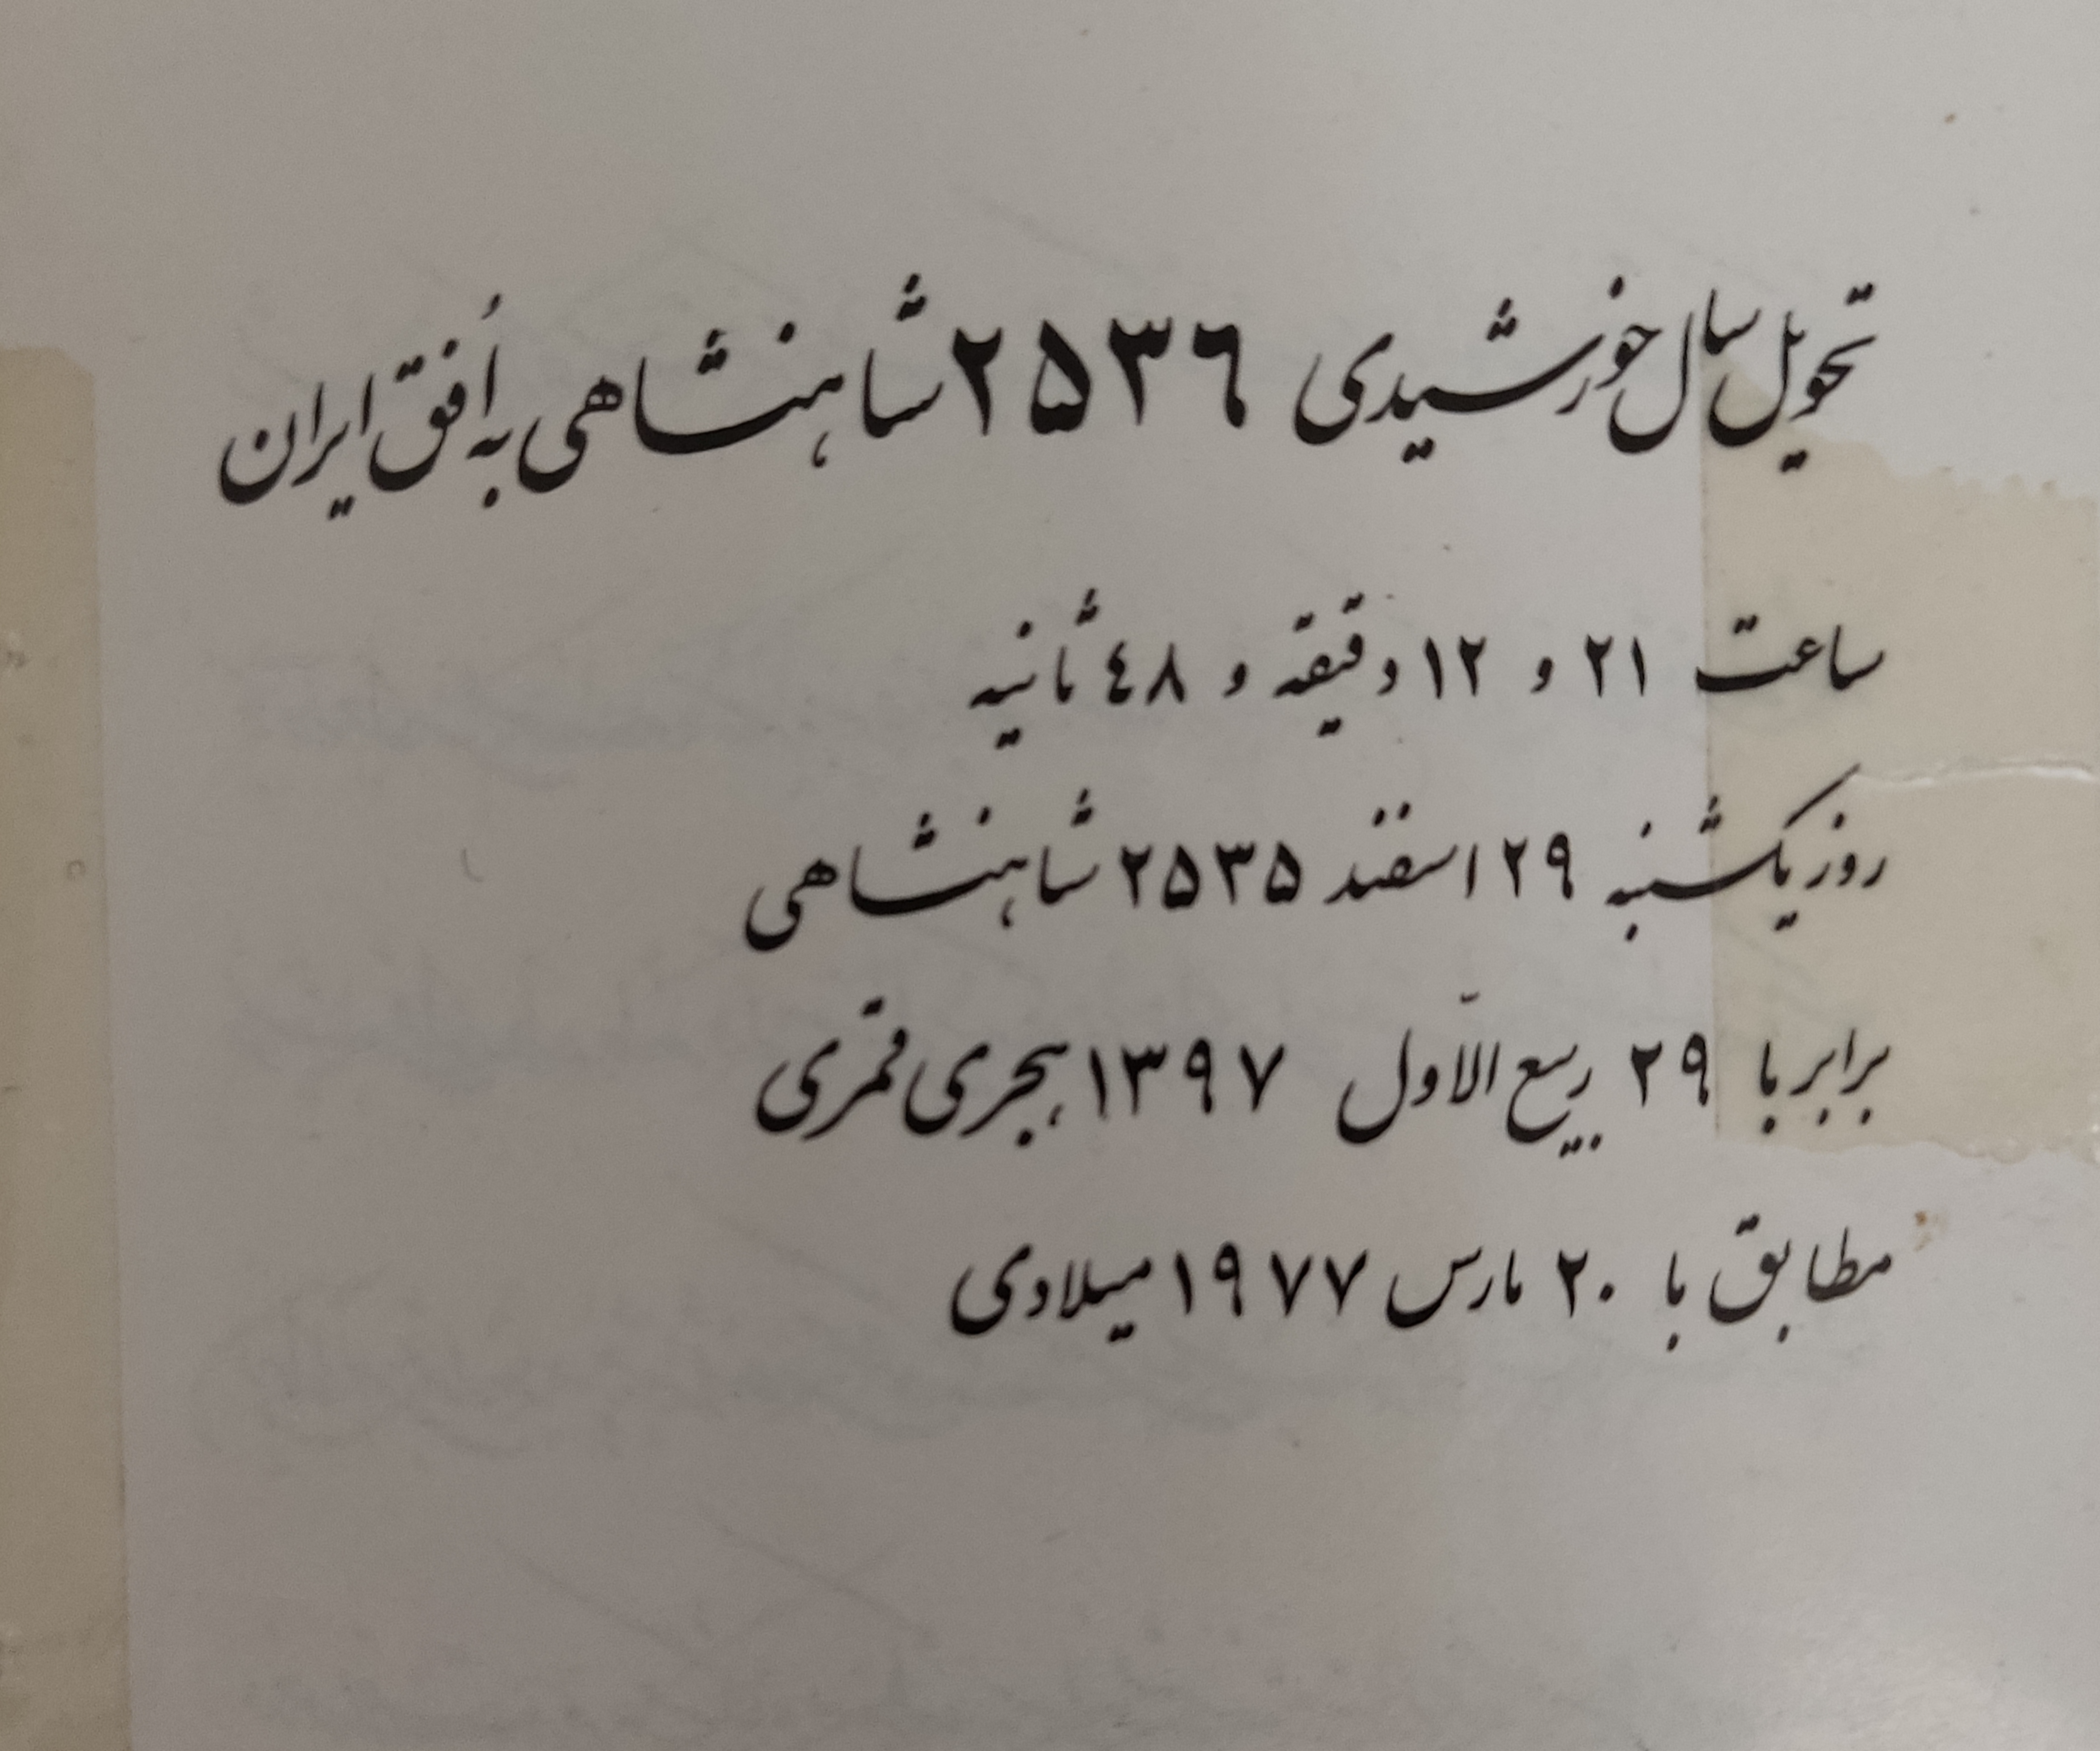 تحویل سال خورشیدی ۲۵۳۶ شاهنشاهی به اُفق ایران
ساعت ۲۱ و ۱۲ دقیقه و ۴۸ ثانیه
روز یکشنبه ۲۹ اسفند ۲۵۳۵ شاهنشاهی
برابر با ۲۹ ربیع الاّول ۱۳۹۷ هجری قمری
مطابق با ۲۰ مارس ۱۹۷۷ میلادی